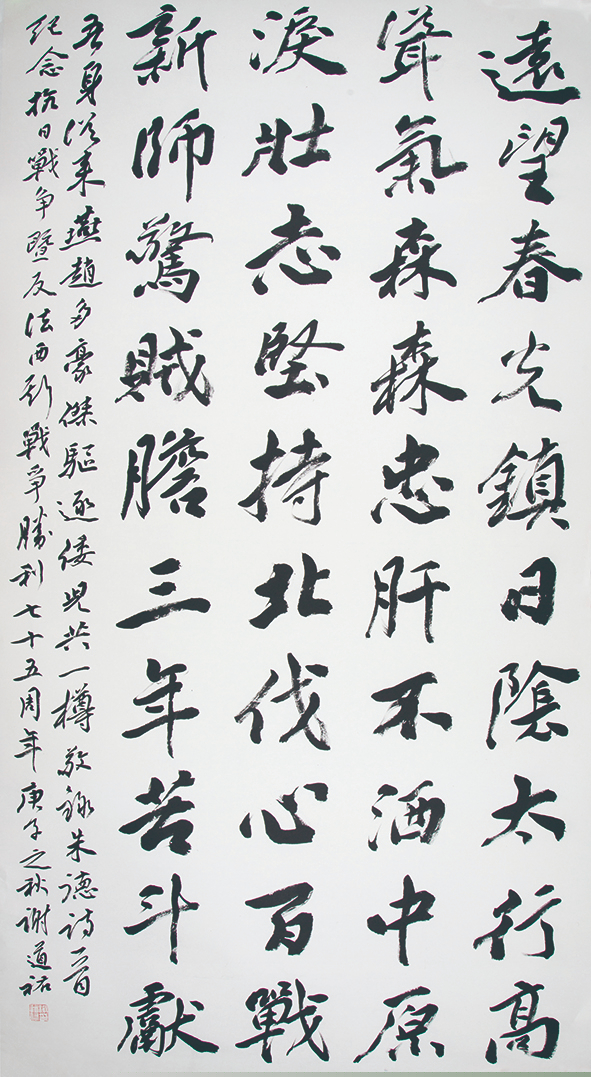 遠望春光鎮日陰太行高
聳氣森森忠肝不洒中原
淚壯志堅持北伐心百戰
新師驚賊膽三年苦斗獻
吾身從来燕趙多豪傑驅逐倭児共一樽敬錄朱德詩一首
紀念抗日戰争暨反法西斯戰爭勝利七十五周年庚子之秋謝道祐